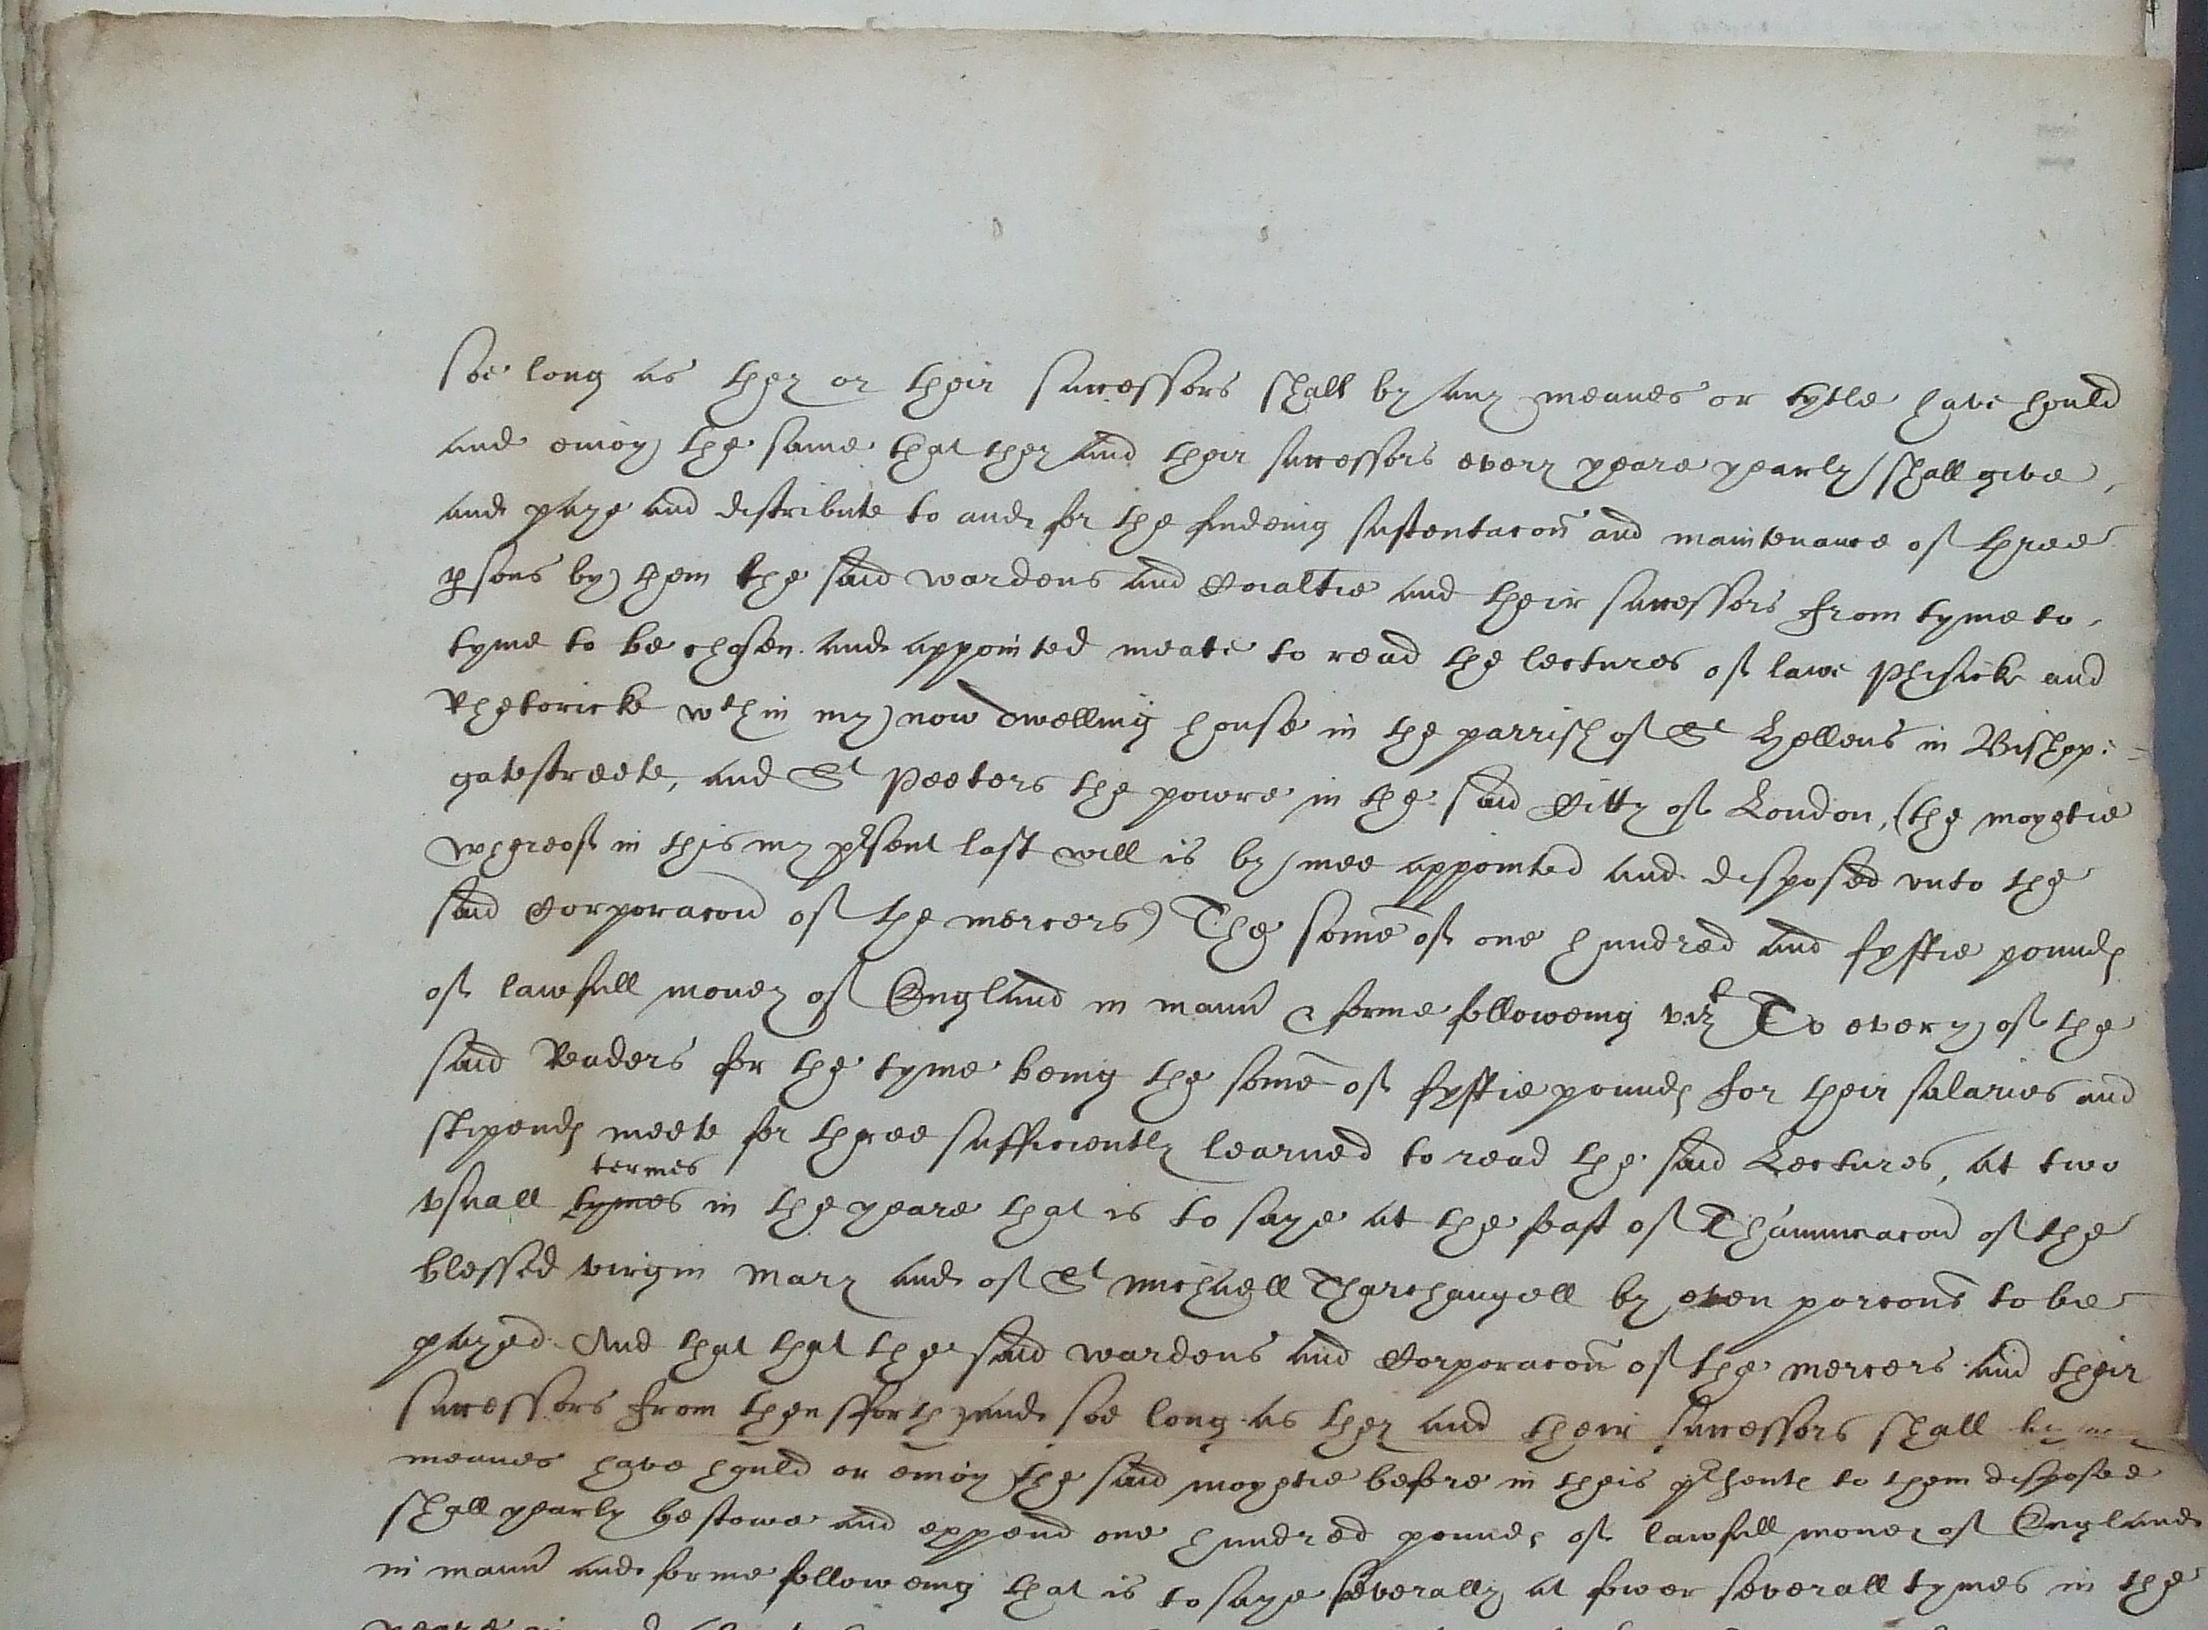 Soe long as they or their successors shall by any meanes or tytle have hould
and enioy the same that they and their successors every yeare yearly shall give
and paye and distribute to and for the findeing sustentacon and maintenance of three
psons by them the said wardens and Coialtie and their successors from tyme to
tyme to be chosen and appointed meate to read the lectures of lawe Phisicke and
Rhetoricke wthin my now dwelling house in the parrish of St Hellens in Bishops
gatestreete, and St Peeters the powre in the said Citty of London, (the moyetie
whereof in this my psent last will is by mee appointed and disposed vnto the
said Corporacon of the mercers) The some of one hundred and fyftie pounds
of lawfull money of England in mann & forme followeing vizt To every of the
said Readers for the tyme being the some of fyftie pounds for their salaries and
stipends meete for three sufficiently learned to read the said Lectures, at two
vsuall tymes termes in the yeare that is to saye at the feast of Thannunciacon of the
blessed virgin Mary and of St Michaell Tharchangell by even porcons to be
payed And that that the said wardens and Corporacon of the mercers and their
successors from thensforth and soe long as they and their successors shall by any
meanes have hould or enioy the said moyetie before in theis psents to them disposed
shall yearly bestowe and expend one hundred pounds of lawfull money of England
in mann and forme followeing that is to saye severally at fower severall tymes in the